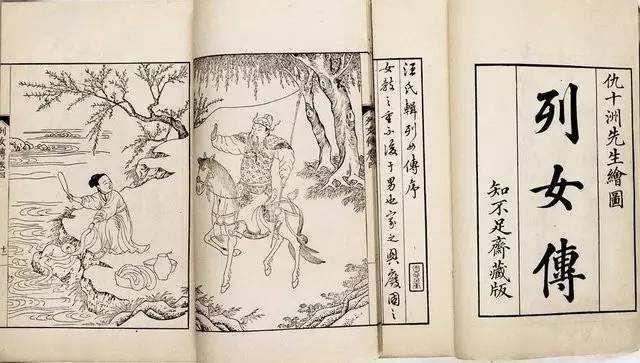 仇十洲先生繪圖
列女傳
知不足齋藏版
汪氏輯列女傳序
女教之重不後于男也家之興廢國之
列女傳
列女傳